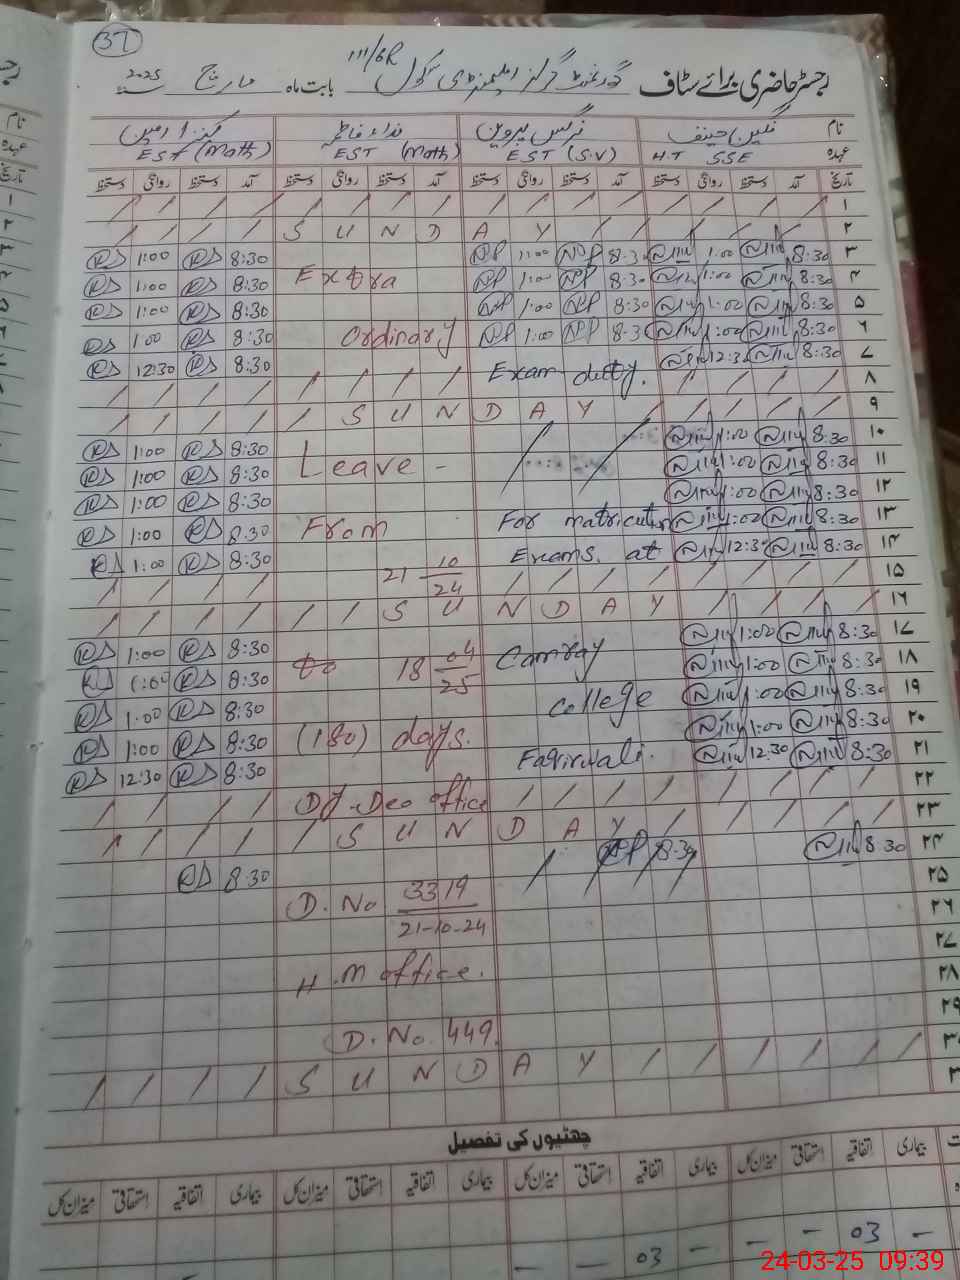 37
رجسٹر حاضری برائے سٹاف گورنمنٹ گرلز ایلیمنٹری سکول 111/6R بابت ماہ مارچ سنہ 2025
نام نگین حنیف نرگس پروین فداء فاطمہ
عہدہ H.T SSE EST (S.V) EST (Math) EST (Math)
تاریخ آمد دستخط روانگی دستخط آمد دستخط روانگی دستخط آمد دستخط روانگی دستخط آمد دستخط روانگی دستخط
۱
۲ S U N D A Y
۳ 8:30 1:00 8:30 1:00 8:30 1:00
۴ 8:30 1:00 8:30 1:00 Extra 8:30 1:00
۵ 8:30 1:00 8:30 1:00 8:30 1:00
۶ 8:30 1:00 8:30 1:00 Ordinary 8:30 1:00
۷ 8:30 12:30 Exam duty. 8:30 12:30
۸
۹ S U N D A Y
۱۰ 8:30 1:00 8:30 1:00
۱۱ 8:30 1:00 Leave - 8:30 1:00
۱۲ 8:30 1:00 8:30 1:00
۱۳ 8:30 1:00 For matriculation From 8:30 1:00
۱۴ 8:30 12:30 Exams. at 8:30 1:00
۱۵ 21 10/24
۱۶ S U N D A Y
۱۷ 8:30 1:00 8:30 1:00
۱۸ 8:30 1:00 to 18 04/25 8:30 1:00
۱۹ 8:30 1:00 college 8:30 1:00
۲۰ 8:30 1:00 (180) days. 8:30 1:00
۲۱ 8:30 12:30 8:30 12:30
۲۲ Dy. Deo office
۲۳ S U N D A Y
۲۴ 8:30 8:30 8:30
۲۵ D. No 3319
۲۶ 21-10-24
۲۷
۲۸ H.M office.
۲۹
۳۰ D. No. 449.
S U N D A Y
چھٹیوں کی تفصیل
بیماری اتفاقیہ استحقاقی میزان کل بیماری اتفاقیہ استحقاقی میزان کل بیماری اتفاقیہ استحقاقی میزان کل بیماری اتفاقیہ استحقاقی میزان کل
– 03 – – – 03 – –
24-03-25 09:39